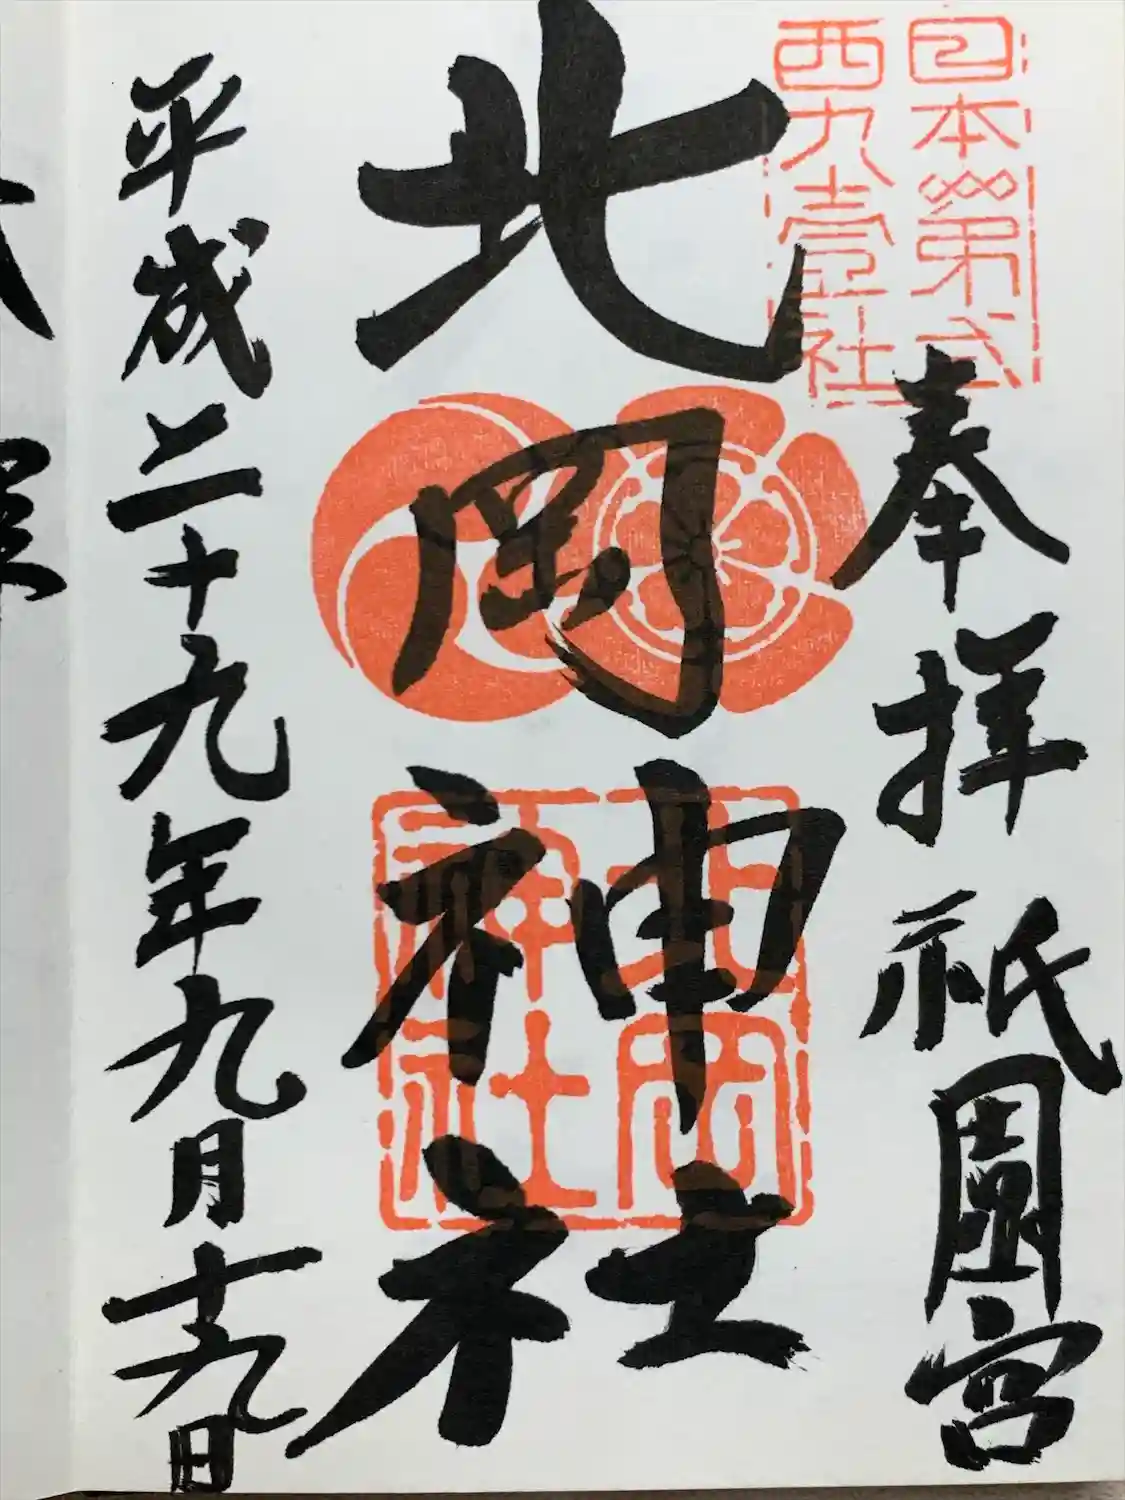 奉拝 祇園宮
北岡神社
平成二十九年九月十九日
西九壹社
北岡
神社